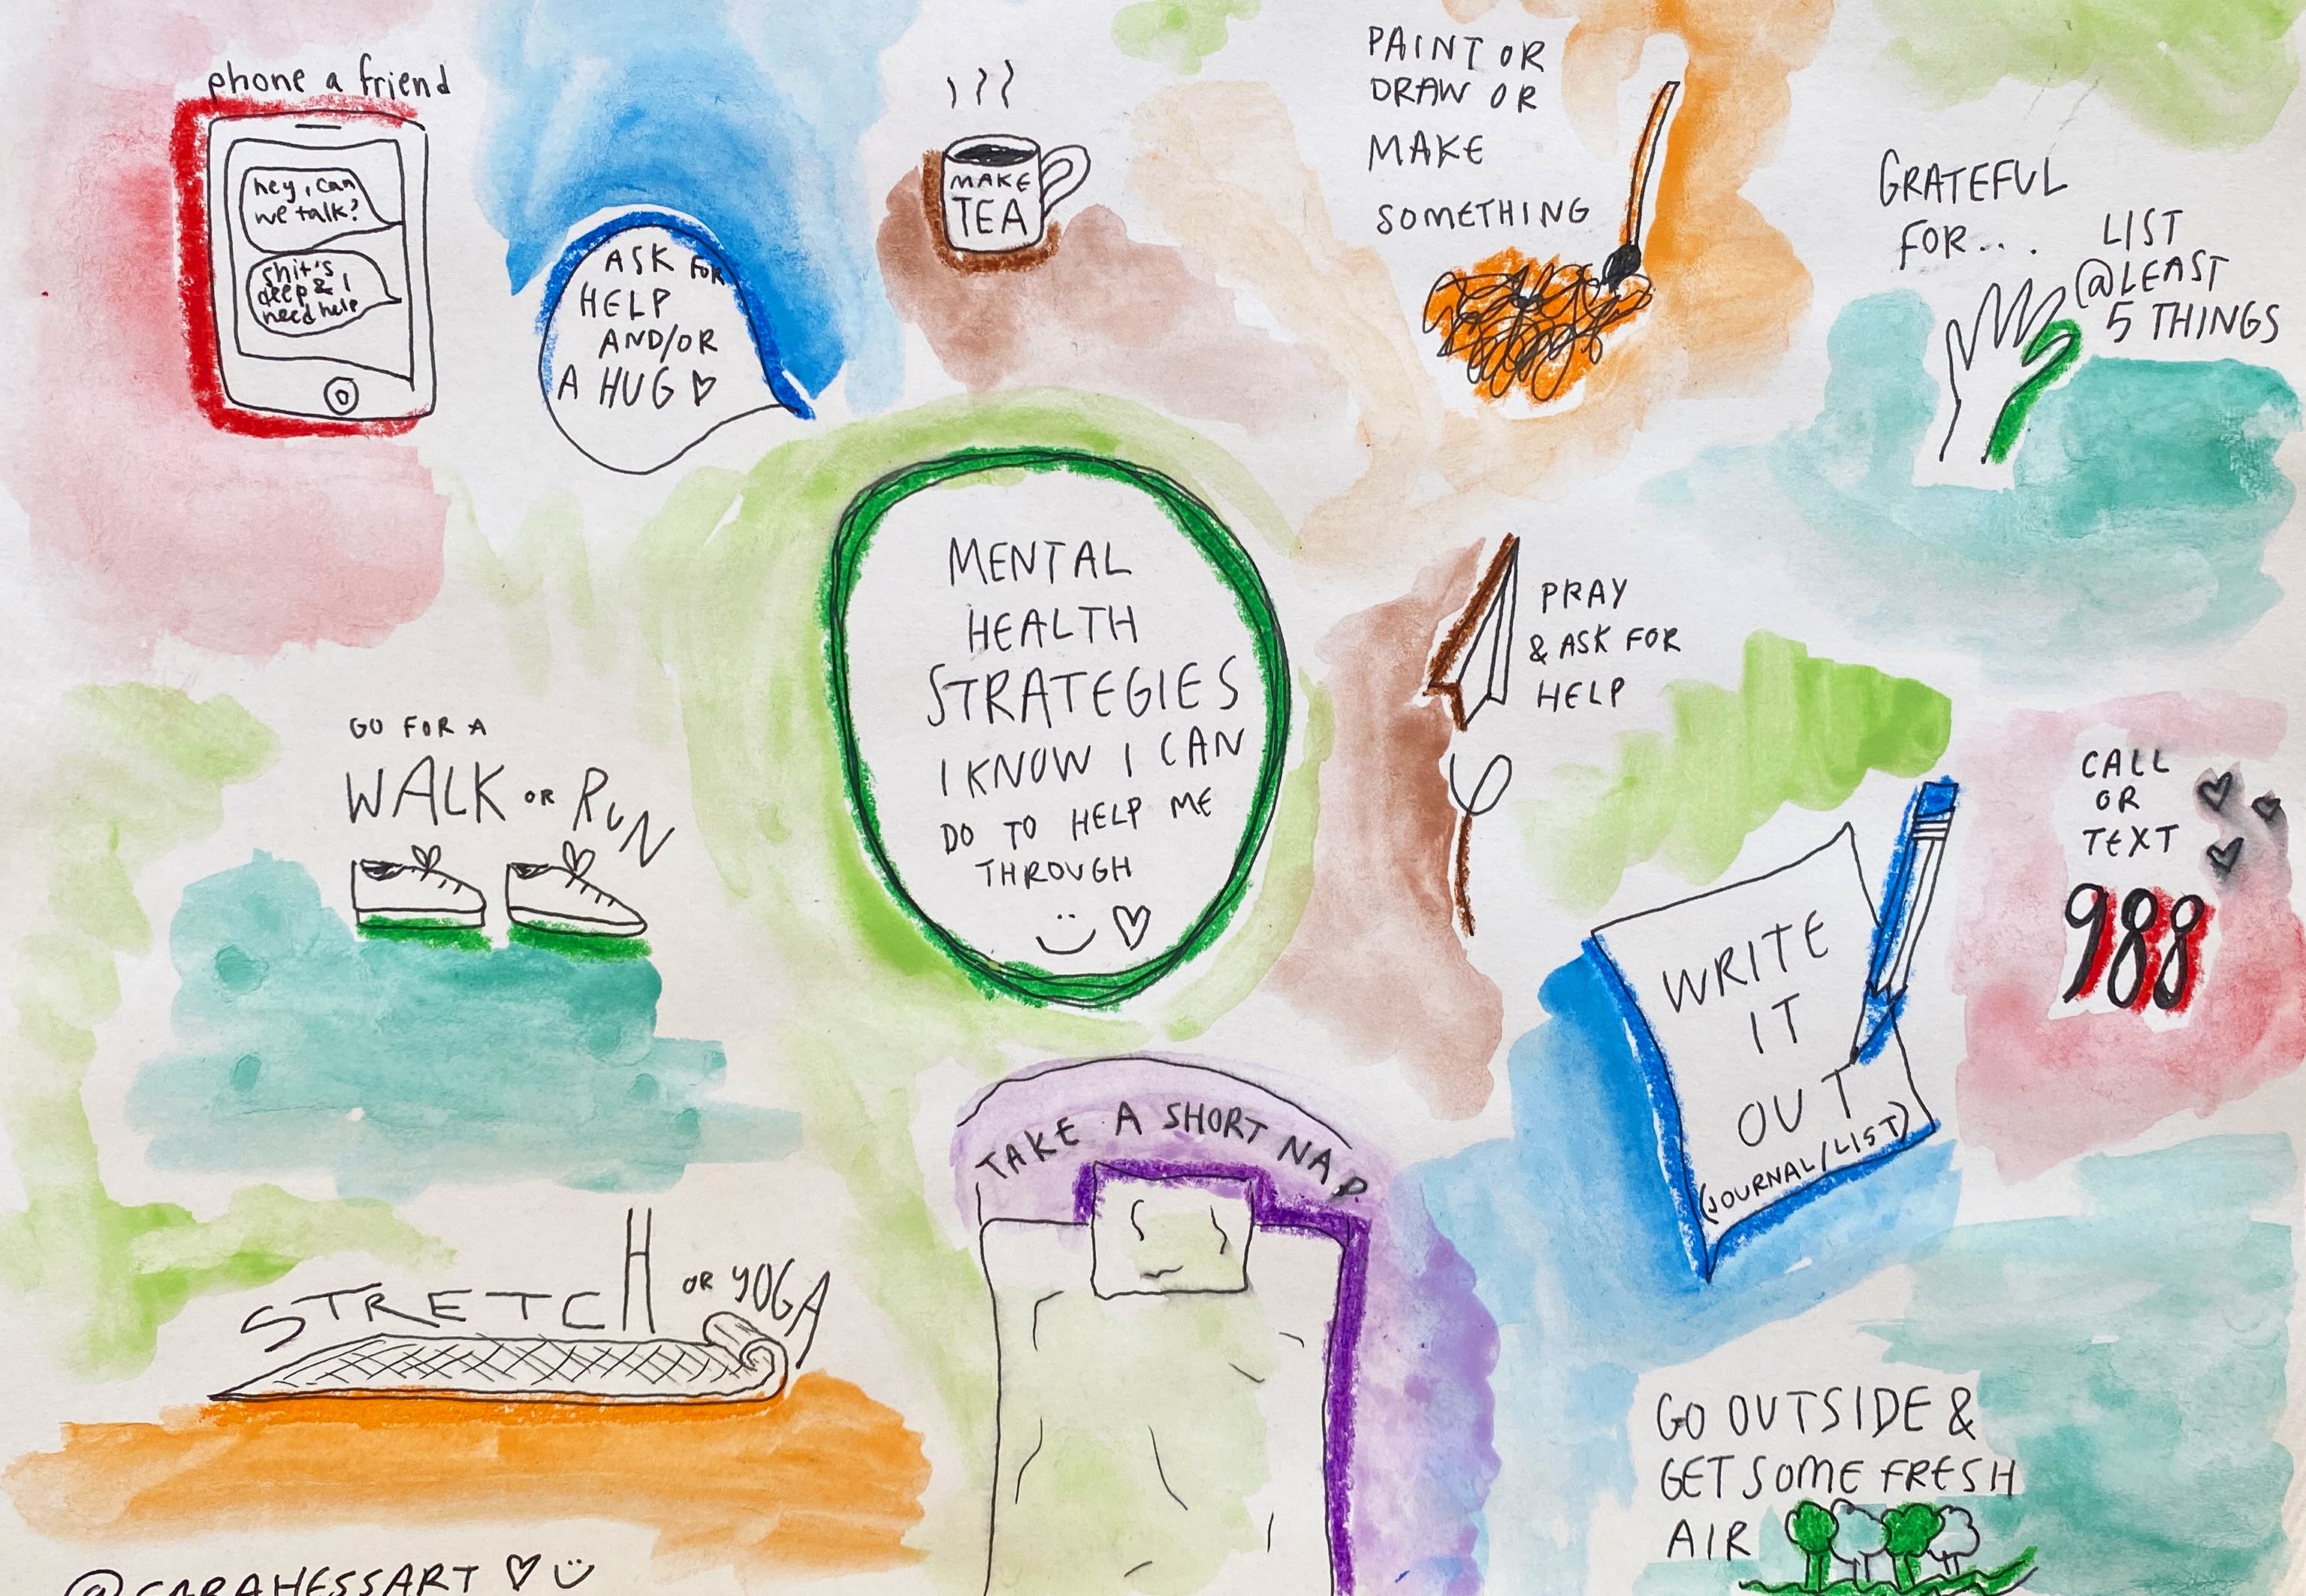 phone a friend
hey, can
we talk?
shit's
deep & I
need help
ASK FOR
HELP
AND/OR
A HUG
MAKE
TEA
PAINT OR
DRAW OR
MAKE
SOMETHING
GRATEFUL
FOR...
LIST
@LEAST
5 THINGS
MENTAL
HEALTH
STRATEGIES
I KNOW I CAN
DO TO HELP ME
THROUGH
PRAY
& ASK FOR
HELP
GO FOR A
WALK OR RUN
CALL
OR
TEXT
988
WRITE
IT
OUT
(JOURNAL/LIST)
TAKE A SHORT NAP.
STRETCH OR YOGA
GO OUTSIDE &
GET SOME FRESH
AIR
@SARAHESSART